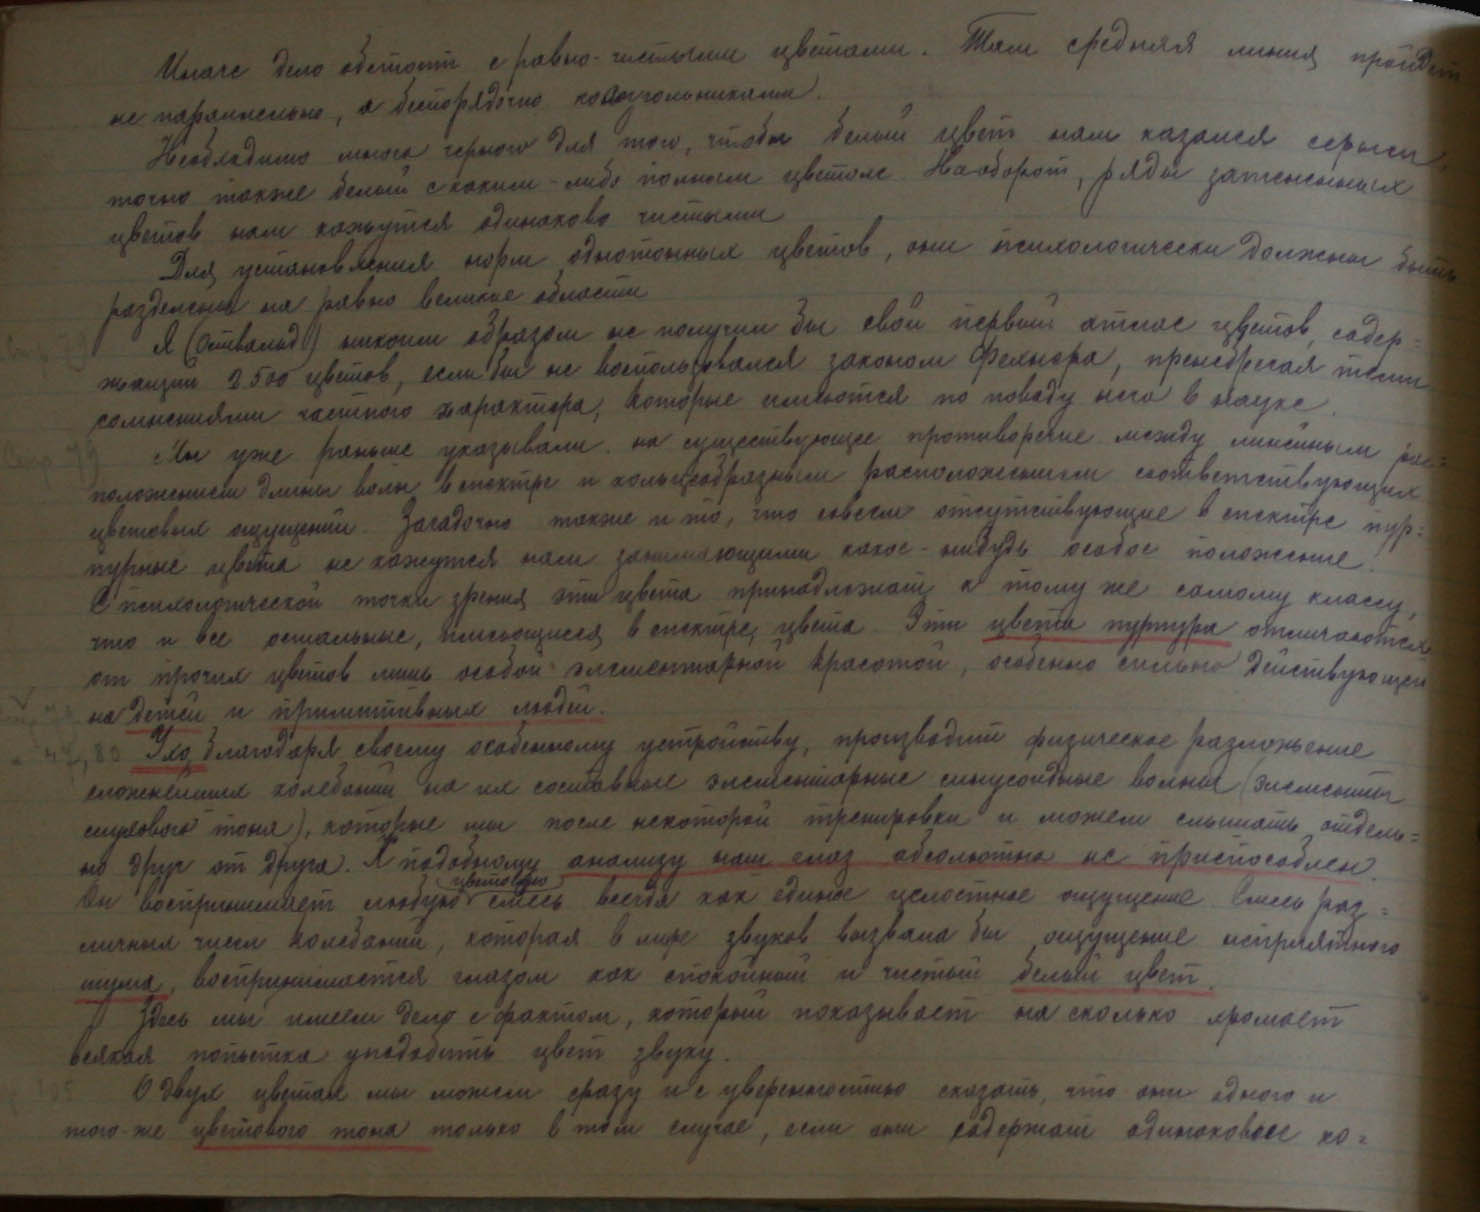 Иначе дело обстоит с равно-чистыми цветами. Там средняя линия пройдет
не параллельно, а беспорядочно
Необходимо много черного для того, чтобы белый цвет нам казался серым,
точно также белый с каким-либо полным цветом. Наоборот, ряды затененных
цветов нам кажутся одинаково чистыми
Для установления норм однотонных цветов, они психологически должны быть
разделены на равно великие области
Я (Оствальд) никоим образом не получил бы свой первый атлас цветов, содер=
жащий 2500 цветов, если бы не воспользовался законом Фехнера, пренебрегая теми
сомнениями частного характера, которые имеются по поводу него в науке.
Стр. 79
Мы уже раньше указывали на существующее противоречие между линейным рас=
положением длины волн в спектре и кольцеобразным расположением соответствующих
цветовых ощущений. Загадочно также и то, что совсем отсутствующие в спектре пур=
пурные цвета не кажутся нам занимающими какое-нибудь особое положение!
С психологической точки зрения эти цвета принадлежат к тому же самому классу,
что и все остальные, имеющиеся в спектре, цвета. Эти цвета пурпура отличаются
от прочих цветов лишь особой элементарной красотой, особенно сильно действующей
на детей и примитивных людей.
79, 80
Ухо благодаря своему особенному устройству, производит физическое разложение
сложнейших колебаний на их составные элементарные синусоидные волны (элементы
слухового тона), которые мы после некоторой тренировки и можем слышать отдель=
но друг от друга. К подобному анализу наш глаз абсолютно не приспособлен.
цветовую
Он воспринимает любую смесь всегда как единое целостное ощущение. Смесь раз=
личных чисел колебаний, которая в мире звуков вызвала бы ощущение неприятного
шума, воспринимается глазом как спокойный и чистый белый цвет.
Здесь мы имеем дело с фактом, который показывает на сколько хромает
всякая попытка уподобить цвет звуку.
О двух цветах мы можем сразу и с уверенностью сказать, что они одного и
того-же цветового тона только в том случае, если они содержат одинаковое ко=